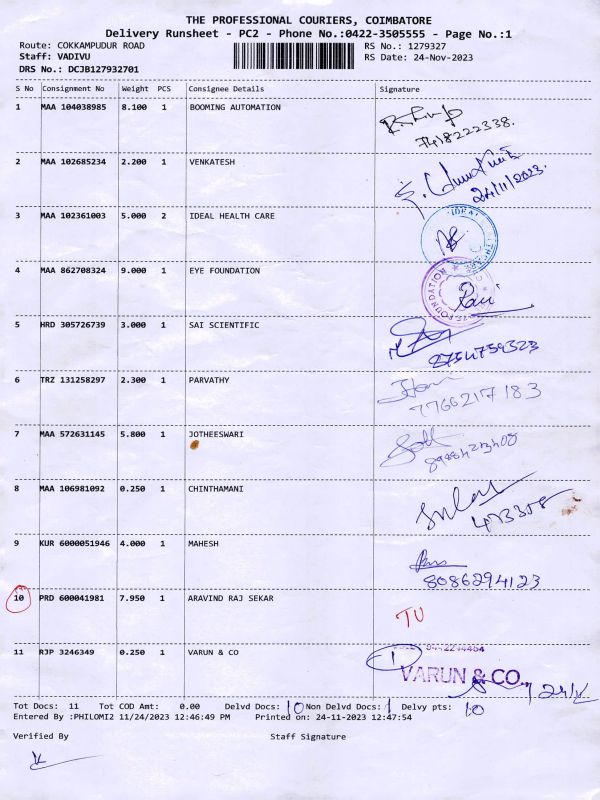 THE PROFESSIONAL COURIERS, COIMBATORE
Delivery Runsheet - PC2 - Phone No.:0422-3505555 - Page No.:1
Route: COKKAMPUDUR ROAD RS No.: 1279327
Staff: VADIVU RS Date: 24-Nov-2023
DRS No.: DCJB127932701
S No Consignment No Weight PCS Consignee Details Signature
1 MAA 104038985 8.100 1 BOOMING AUTOMATION
7418222338.
2 MAA 102685234 2.200 1 VENKATESH
24/11/2023.
3 MAA 102361003 5.000 2 IDEAL HEALTH CARE
IDEAL
4 MAA 862708324 9.000 1 EYE FOUNDATION
Ravi
FOUNDATION
5 HRD 305726739 3.000 1 SAI SCIENTIFIC
8754759323
6 TRZ 131258297 2.300 1 PARVATHY
7766217183
7 MAA 572631145 5.800 1 JOTHEESWARI
8 MAA 106981092 0.250 1 CHINTHAMANI
9 KUR 6000051946 4.000 1 MAHESH
8086294123
10 PRD 600041981 7.950 1 ARAVIND RAJ SEKAR
11 RJP 3246349 0.250 1 VARUN & CO
VARUN & CO.
Tot Docs: 11 Tot COD Amt: 0.00 Delvd Docs: 10 Non Delvd Docs: 1 Delvy pts: 10
Entered By :PHILOMI2 11/24/2023 12:46:49 PM Printed on: 24-11-2023 12:47:54
Verified By Staff Signature